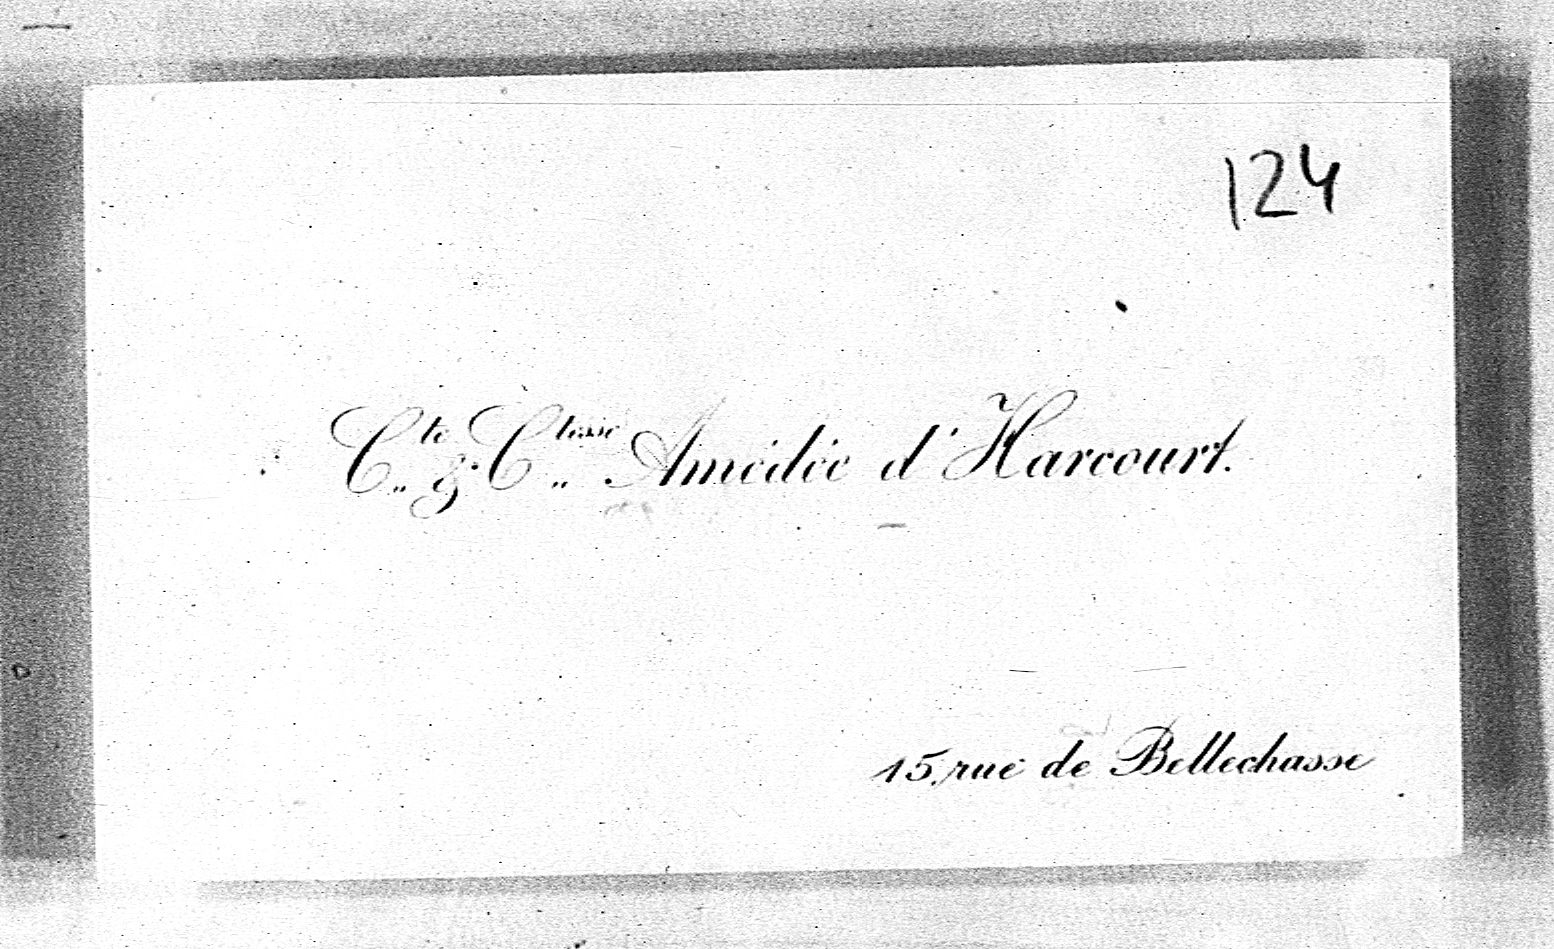 124
Cte & Ctesse Amédée d'Harcourt.
15, rue de Bellechasse